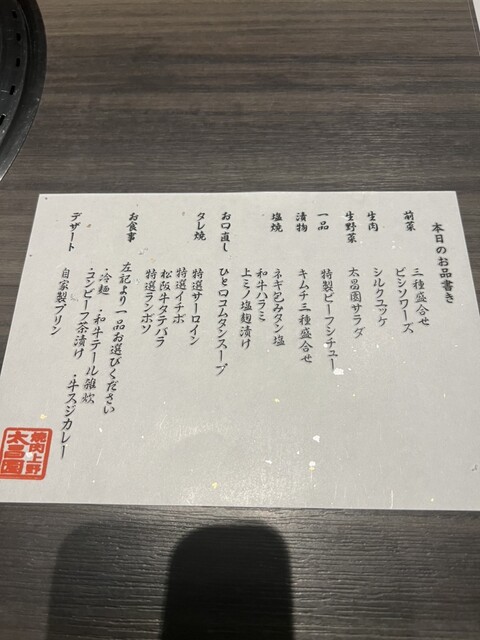 本日のお品書き
前菜
三種盛合せ
ビシソワーズ
生肉
シルクユッケ
生野菜
太昌園サラダ
一品
特製ビーフシチュー
漬物
キムチ三種盛合せ
塩焼
ネギ包みタン塩
和牛ハラミ
上ミノ塩麹漬け
お口直し
ひと口コムタンスープ
タレ焼
特選サーロイン
特選イチボ
松阪牛タテバラ
特選ランボソ
お食事
左記より一品お選びください
・冷麺 ・和牛テール雑炊
・コンビーフ茶漬け ・牛スジカレー
デザート
自家製プリン
焼肉上野
太昌園